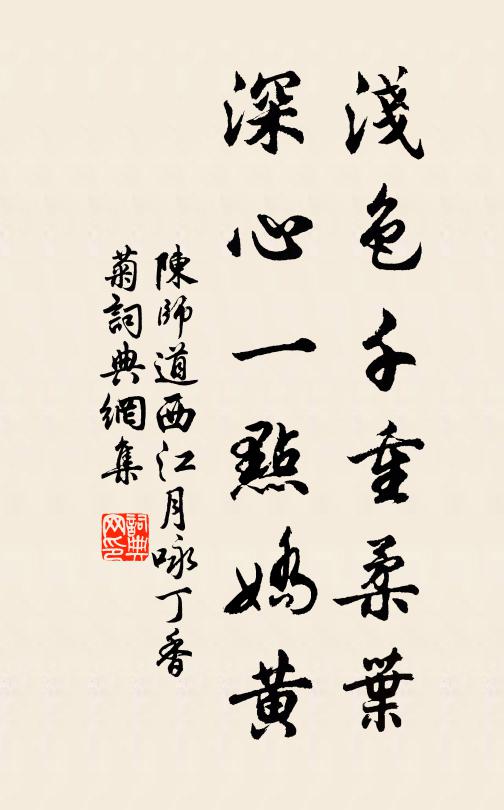 淺色千重柔葉
深心一點嬌黃
陳師道西江月咏丁香
菊詞典網集
詞典
网印